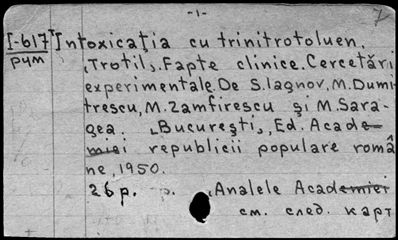 -1-
7
I-617 Intoxicaţia cu trinitrotoluen,
рум „Trotil„. Fapte clinice. Cercetări
experimentale. De S. Iagnov, M. Dumi-
trescu, M. Zamfirescu şi M. Sara-
gea. „Bucureşti„, Ed. Acade-
miei republicii populare romȃ
ne, 1950.
26 p. „Analele Academiei
см. след. карт